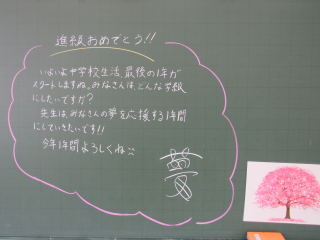 進級おめでとう!!
いよいよ中学校生活、最後の1年が
スタートしますね。みなさんは、どんな学級
にしたいですか?
先生は、みなさんの夢を応援する1年間
にしていきたいです!!
今年1年間よろしくね
夢